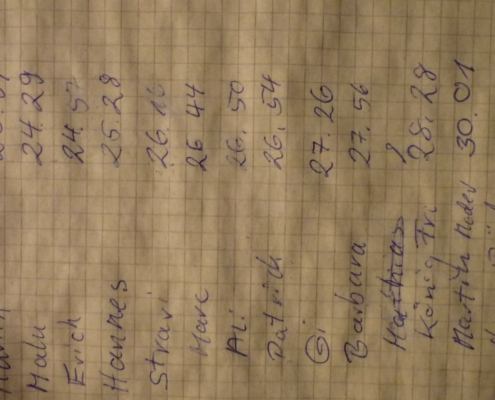 Malu 24.29
Erich 24.5
Hannes 25.28
Stravi 26.
Marc 26 44
Ali 26.50
Patrick 26.54
Gi 27.26
Barbara 27.56
Mathias ?
König Fri 28.28
Martin 30.01